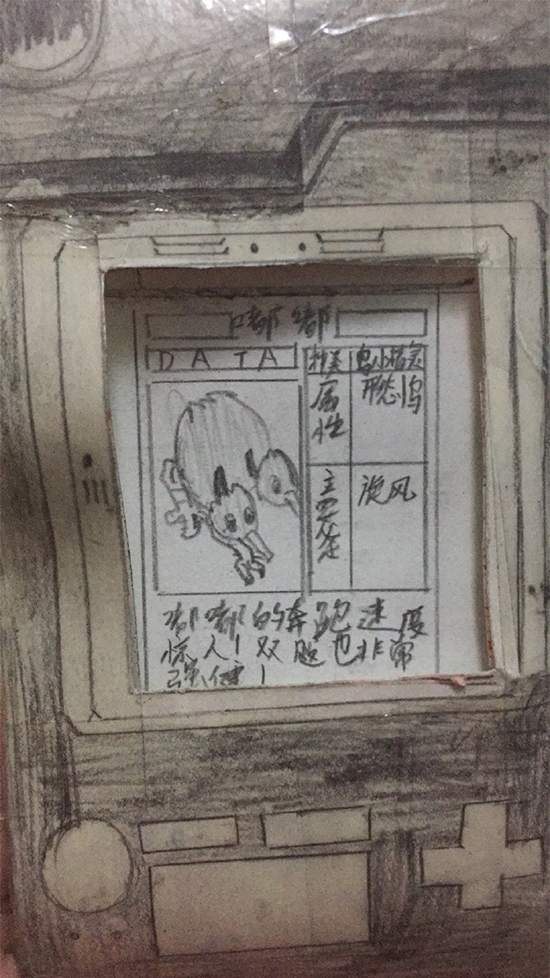 嘟嘟
DATA
种类
鸟小精灵
属性
形态鸟
主要绝
旋风
嘟嘟的奔跑速度
惊人！双腿也非常
强健！